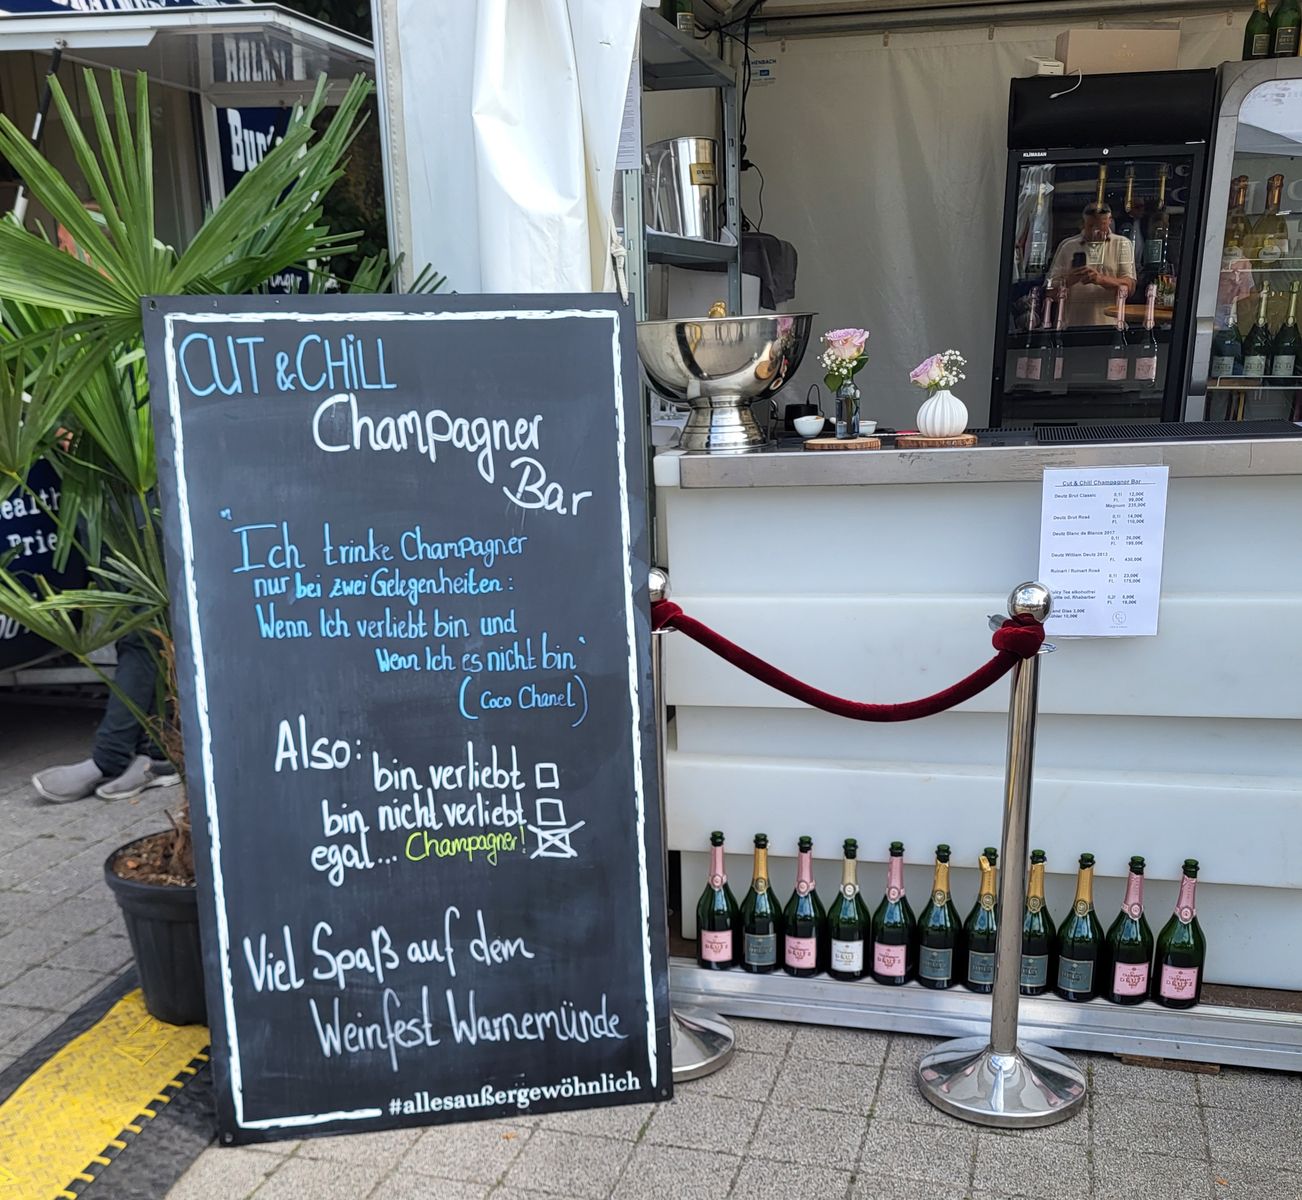 CUT & CHILL
Champagner
Bar
"Ich trinke Champagner
nur bei zwei Gelegenheiten:
Wenn Ich verliebt bin und
Wenn Ich es nicht bin"
(Coco Chanel)
Also:
bin verliebt
bin nicht verliebt
egal... Champagner!
Viel Spaß auf dem
Weinfest Warnemünde
#allesaußergewöhnlich
KLIMASAN
DEUTZ
Cut & Chill Champagner Bar
Deutz Brut Classic 0,1l 12,00€
Fl. 99,00€
Magnum 235,00€
Deutz Brut Rosé 0,1l 14,00€
Fl. 110,00€
Deutz Blanc de Blancs 2017
Deutz William Deutz 2013
Fl.
Ruinart / Ruinart Rosé
0,1l 23,00€
Fl. 175,00€
alkoholfrei
od. Rhabarber
DEUTZ
DEUTZ
DEUTZ
DEUTZ
DEUTZ
DEUTZ